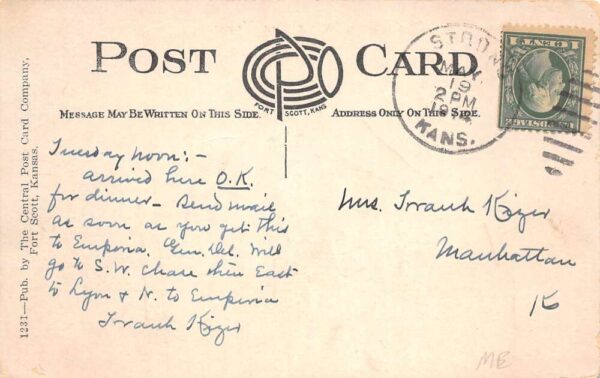 POST CARD
FORT SCOTT, KANS
MESSAGE MAY BE WRITTEN ON THIS SIDE.
ADDRESS ONLY ON THIS SIDE.
STRONG
MAY
19
2 PM
KANS.
U.S. POSTAGE
1231—Pub. by The Central Post Card Company,
Fort Scott, Kansas.
Tuesday noon:-
arrived here O.K.
for dinner - Send mail
as soon as you get this
to Emporia, Gen. Del. Will
go to S.W. Chase then East
to Lyon & N. to Emporia
Frank Kizer
Mrs. Frank Kizer
Manhattan
K
ME